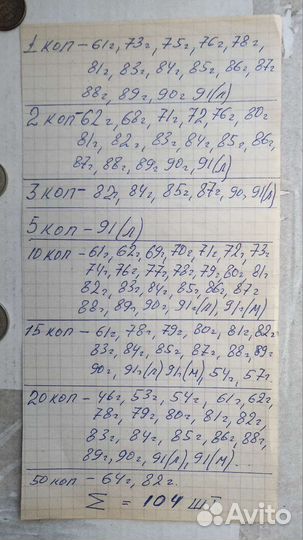 1 коп – 61г, 73г, 75г, 76г, 78г,
81г, 83г, 84г, 85г, 86г, 87г
88г, 89г, 90г 91(л)
2 коп – 62г, 68г, 71г, 72, 76г, 80г
81г, 82г, 83г, 84г, 85г, 86г,
87г, 88г, 89г 90г, 91(л)
3 коп – 82г, 84г, 85г, 87г, 90, 91(л)
5 коп – 91(л)
10 коп – 61г, 62г, 69г, 70г, 71г, 72г, 73г
74г, 76г, 77г, 78г, 79г, 80г 81г
82г, 83г, 84г, 85г, 86г, 87г
88г, 89г, 90г, 91г(л), 91г(м)
15 коп – 61г, 78г, 79г, 80г, 81г, 82г
83г, 84г, 85г, 87г, 88г, 89г
90г, 91г(л) 91г(м), 54г, 57г.
20 коп – 46г, 53г, 54г, 61г, 62г,
78г, 79г, 80г, 81г, 82г,
83г, 84г, 85г, 86г, 88г,
89г, 90г, 91(л), 91(м)...
50 коп – 64г, 82г.
Σ = 104 шт
Avito